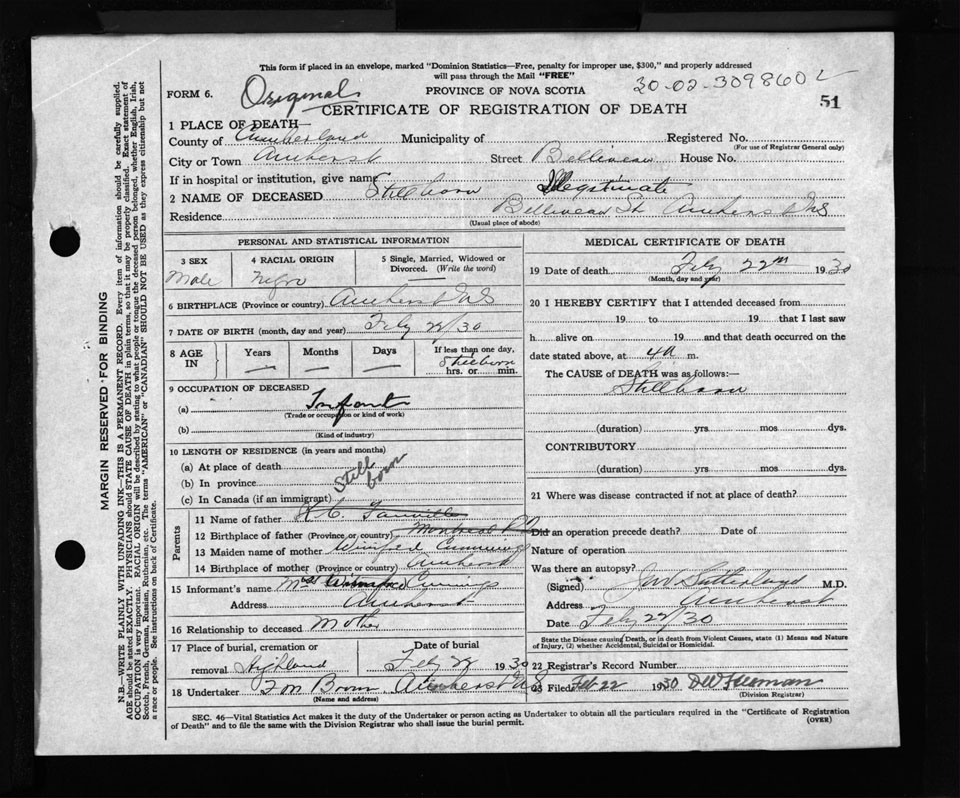 This form if placed in an envelope, marked "Dominion Statistics—Free, penalty for improper use, $300," and properly addressed
will pass through the Mail "FREE"
FORM 6.
Original
PROVINCE OF NOVA SCOTIA
30-02-309860
51
CERTIFICATE OF REGISTRATION OF DEATH
1 PLACE OF DEATH—
County of Cumberland Municipality of Registered No.
(For use of Registrar General only)
City or Town Amherst Street Belliveau House No.
If in hospital or institution, give name
2 NAME OF DECEASED Stillborn Illegitimate
Residence Belliveau St Amherst NS
(Usual place of abode)
PERSONAL AND STATISTICAL INFORMATION
3 SEX
Male
4 RACIAL ORIGIN
Negro
5 Single, Married, Widowed or Divorced. (Write the word)
6 BIRTHPLACE (Province or country) Amherst NS
7 DATE OF BIRTH (month, day and year) Feby 22/30
8 AGE IN
Years
Months
Days
If less than one day,
Stillborn
hrs. or min.
9 OCCUPATION OF DECEASED
(a) Infant
(Trade or occupation or kind of work)
(b)
(Kind of industry)
10 LENGTH OF RESIDENCE (in years and months)
(a) At place of death
(b) In province
(c) In Canada (if an immigrant)
Still born
Parents
11 Name of father
12 Birthplace of father (Province or country) Montreal
13 Maiden name of mother Winifred Cummings
14 Birthplace of mother (Province or country) Amherst
15 Informant's name Cummings
Address Amherst
16 Relationship to deceased Mother
17 Place of burial, cremation or removal Highland
Date of burial
Feby 22 1930
18 Undertaker Brown Amherst NS
(Name and address)
MEDICAL CERTIFICATE OF DEATH
19 Date of death Feby 22nd 1930
(Month, day and year)
20 I HEREBY CERTIFY that I attended deceased from
19 to 19 that I last saw
h alive on 19 and that death occurred on the
date stated above, at 4a m.
The CAUSE of DEATH was as follows:—
Stillborn
(duration) yrs. mos. dys.
CONTRIBUTORY
(duration) yrs. mos. dys.
21 Where was disease contracted if not at place of death?
Did an operation precede death? Date of
Nature of operation
Was there an autopsy?
(Signed) Sutherland M.D.
Address Amherst
Date Feby 22/30
State the Disease causing Death, or in death from Violent Causes, state (1) Means and Nature of Injury, (2) whether Accidental, Suicidal or Homicidal.
22 Registrar's Record Number
23 Filed Feb 22 1930
(Division Registrar)
SEC. 46—Vital Statistics Act makes it the duty of the Undertaker or person acting as Undertaker to obtain all the particulars required in the "Certificate of Registration
of Death" and to file the same with the Division Registrar who shall issue the burial permit.
(OVER)
MARGIN RESERVED FOR BINDING
N.B.—WRITE PLAINLY WITH UNFADING INK—THIS IS A PERMANENT RECORD. Every item of information should be carefully supplied.
AGE should be stated EXACTLY. PHYSICIANS should STATE CAUSE OF DEATH in plain terms, so that it may be properly classified. Exact statement of
OCCUPATION is very important. RACIAL ORIGIN will be described by stating to what people or tongue the deceased person belonged, whether English, Irish,
Scotch, French, German, Russian, Ruthenian, etc. The terms "AMERICAN" or "CANADIAN" SHOULD NOT BE USED as they express citizenship but not
a race or people. See instructions on back of Certificate.